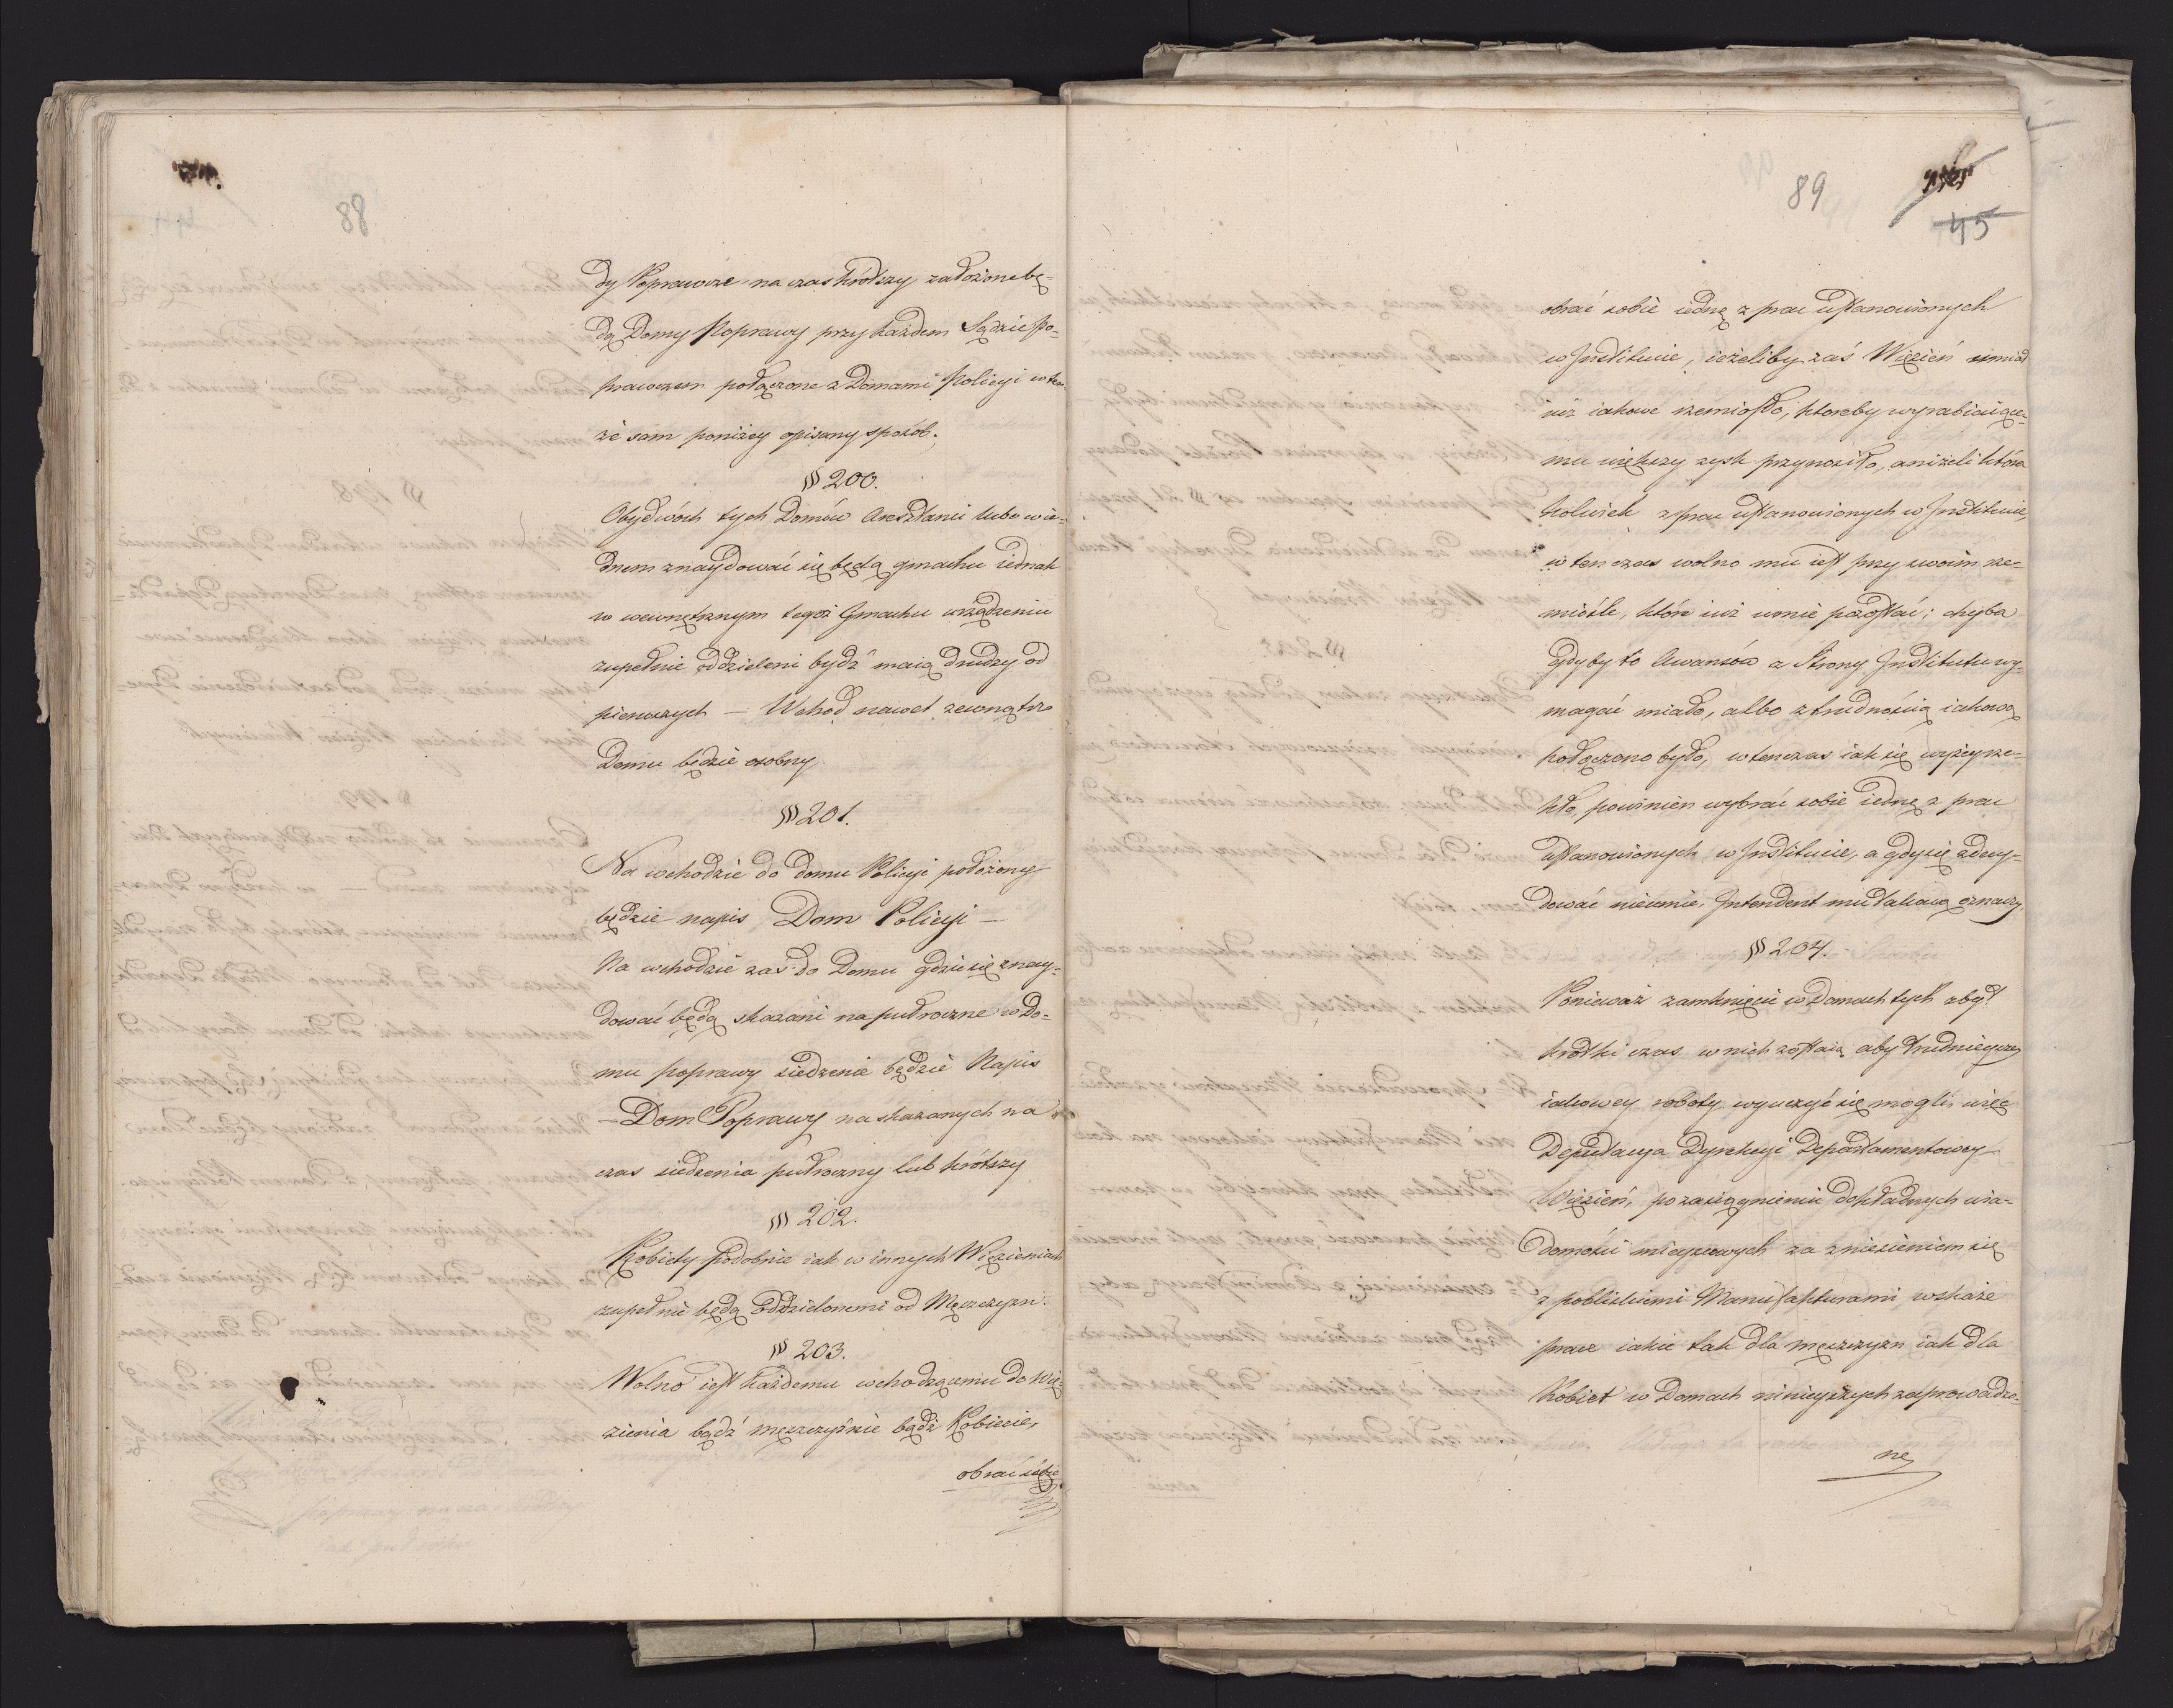 88
dy Poprawcze na czas krótszy założone bę-
dą Domy Poprawy przy każdem Sądzie Po-
prawczem połączone z Domami Policyi w ten
że sam poniżey opisany sposób.
§ 200.
Obydwóch tych Domów Aresztanci lubo w ie-
dnem znaydować się będą gmachu iednak
w wewnętrznym tegoż Gmachu urządzeniu
zupełnie oddzieleni bydź maią drudzy od
pierwszych — Wchod nawet zewnątrz
Domu będzie osobny
§ 201.
Na wchodzie do domu Policyi położony
będzie napis Dom Policyi —
Na wchodzie zas do Domu gdzie się znay-
dować będą skazani na pułroczne w Do-
mu poprawy siedzenie będzie Napis
— Dom Poprawy na skazanych na
czas siedzenia pułroczny lub krótszy
§ 202.
Kobiety podobnie iak w innych Więzieniach
zupełnie będą oddzielonemi od Męszczyzn.
§ 203.
Wolno iest każdemu wchodzącemu do Wię-
zienia bądź męszczyźnie bądź Kobiecie,
obrać sobie
89
45
obrać sobie iednę z prac ustanowionych
w Institucie, ieżeliby zaś Więzień umiał
iuż iakowe rzemiosło, ktoreby wyrabiaiące-
mu większy zysk przynosiło, aniżeli która
kolwiek z prac ustanowionych w Institucie,
w ten czas wolno mu iest przy swoim rze-
miośle, które iuż umie pozostać; chyba
gdyby to Awansów z Strony Institutu wy-
magać miało, albo z trudnością iakową
połączono było, w tenczas iak się wyżey rze-
kło, powinien wybrać sobie iednę z prac
ustanowionych w Institucie, a gdy się zdecy-
dować nieumie, Intendent mu takową oznaczy.
§ 204.
Ponieważ zamknięci w Domach tych zbyt
krotki czas w nich zostaią aby trudnieyszey
iakowey roboty wyuczyć się mogli, więc
Deputacya Dyrekcyi Departamentowey
Więzień, po zasiągnieniu dokładnych wia-
domości mieyscowych za zniesieniem się
z poblizkiemi Manufakturami wskaże
prace iakie tak dla męszczyzn iak dla
Kobiet w Domach ninieyszych zaprowadzo-
ne